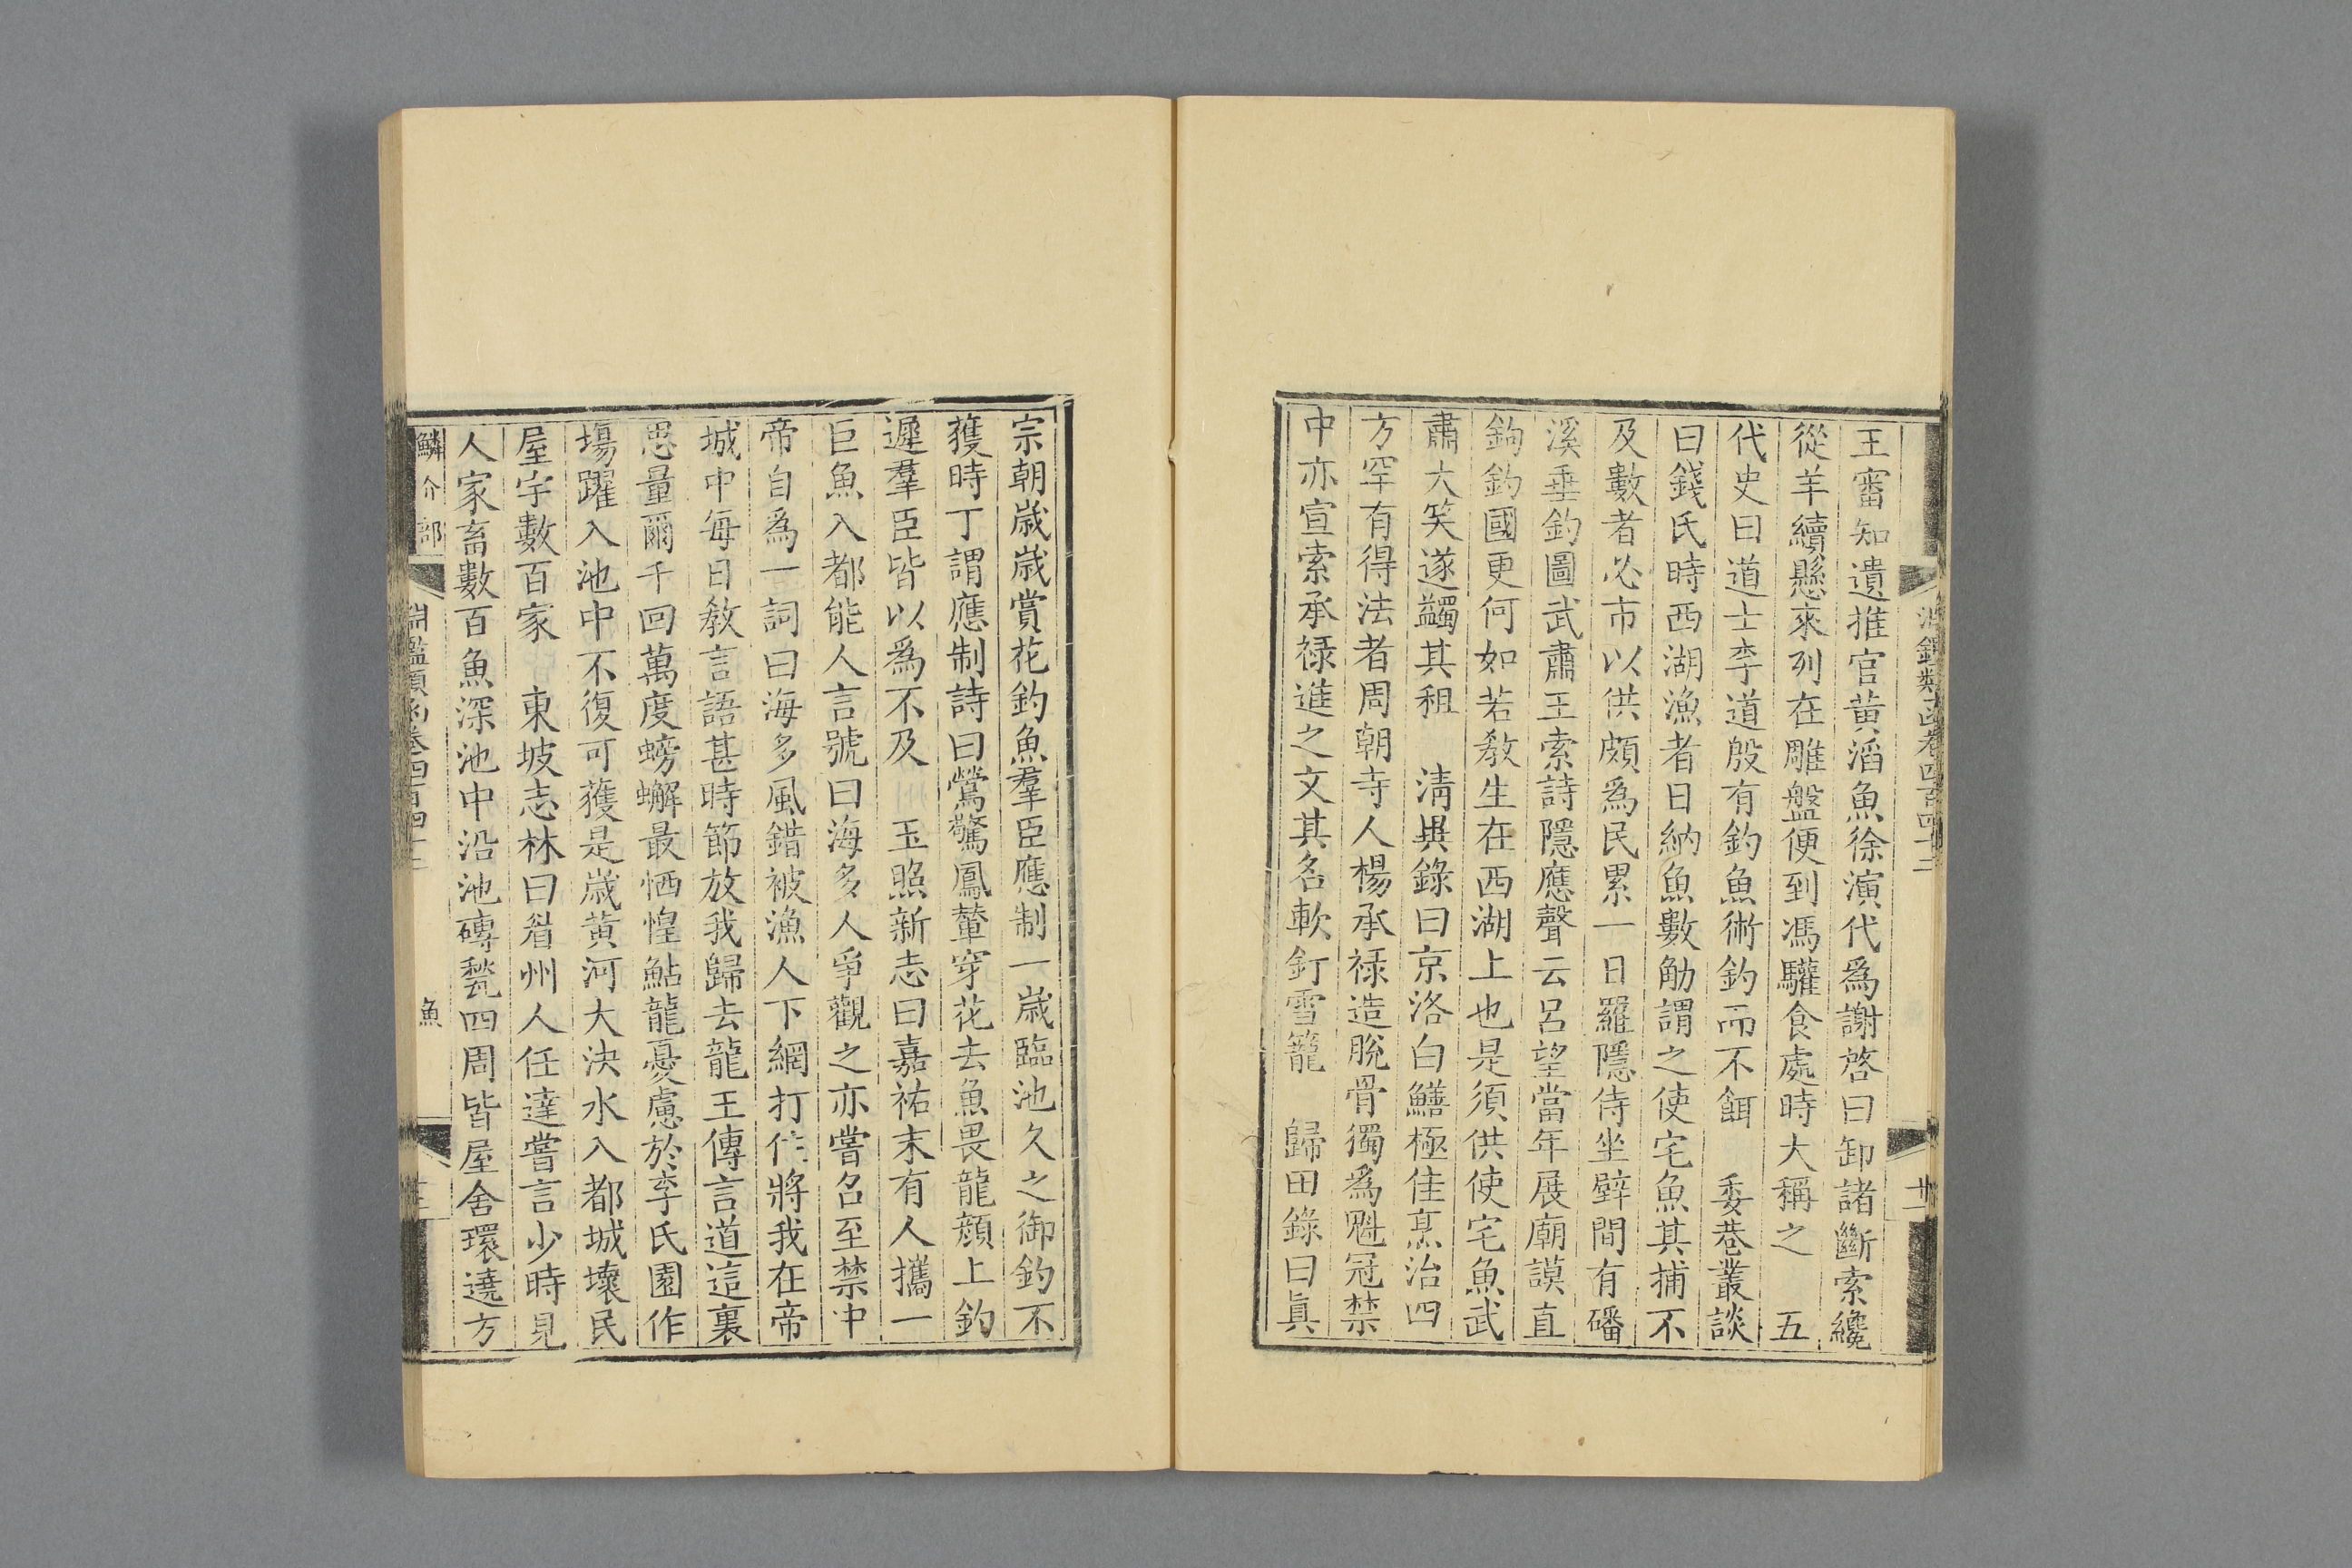 淵鑑類函卷四百四十二
十二
王審知遺推官黃滔魚徐演代爲謝啓曰卸諸斷索纔
從羊續懸來列在雕盤便到馮驩食處時大稱之　五
代史曰道士李道殷有釣魚術釣而不餌　委巷叢談
曰錢氏時西湖漁者日納魚數觔謂之使宅魚其捕不
及數者必市以供頗爲民累一日羅隱侍坐壁間有磻
溪垂釣圖武肅王索詩隱應聲云呂望當年展廟謨直
鉤釣國更何如若教生在西湖上也是須供使宅魚武
肅大笑遂蠲其租　淸異錄曰京洛白鱔極佳烹治四
方罕有得法者周朝寺人楊承祿造脫骨獨爲魁冠禁
中亦宣索承祿進之文其名軟釘雪籠　歸田錄曰眞
宗朝歲歲賞花釣魚羣臣應制一歲臨池久之御釣不
獲時丁謂應制詩曰鶯驚鳳輦穿花去魚畏龍顏上釣
遲羣臣皆以爲不及　玉照新志曰嘉祐末有人攜一
巨魚入都能人言號曰海多人爭觀之亦嘗召至禁中
帝自爲一詞曰海多風錯被漁人下網打住將我在帝
城中每日教言語甚時節放我歸去龍王傳言道這裏
思量爾千回萬度螃蠏最恓惶鮎龍憂慮於李氏園作
場躍入池中不復可獲是歲黃河大決水入都城壞民
屋宇數百家　東坡志林曰眉州人任達嘗言少時見
人家畜數百魚深池中沿池磚甃四周皆屋舍環遶方
鱗介部
淵鑑類函卷四百四十二
魚